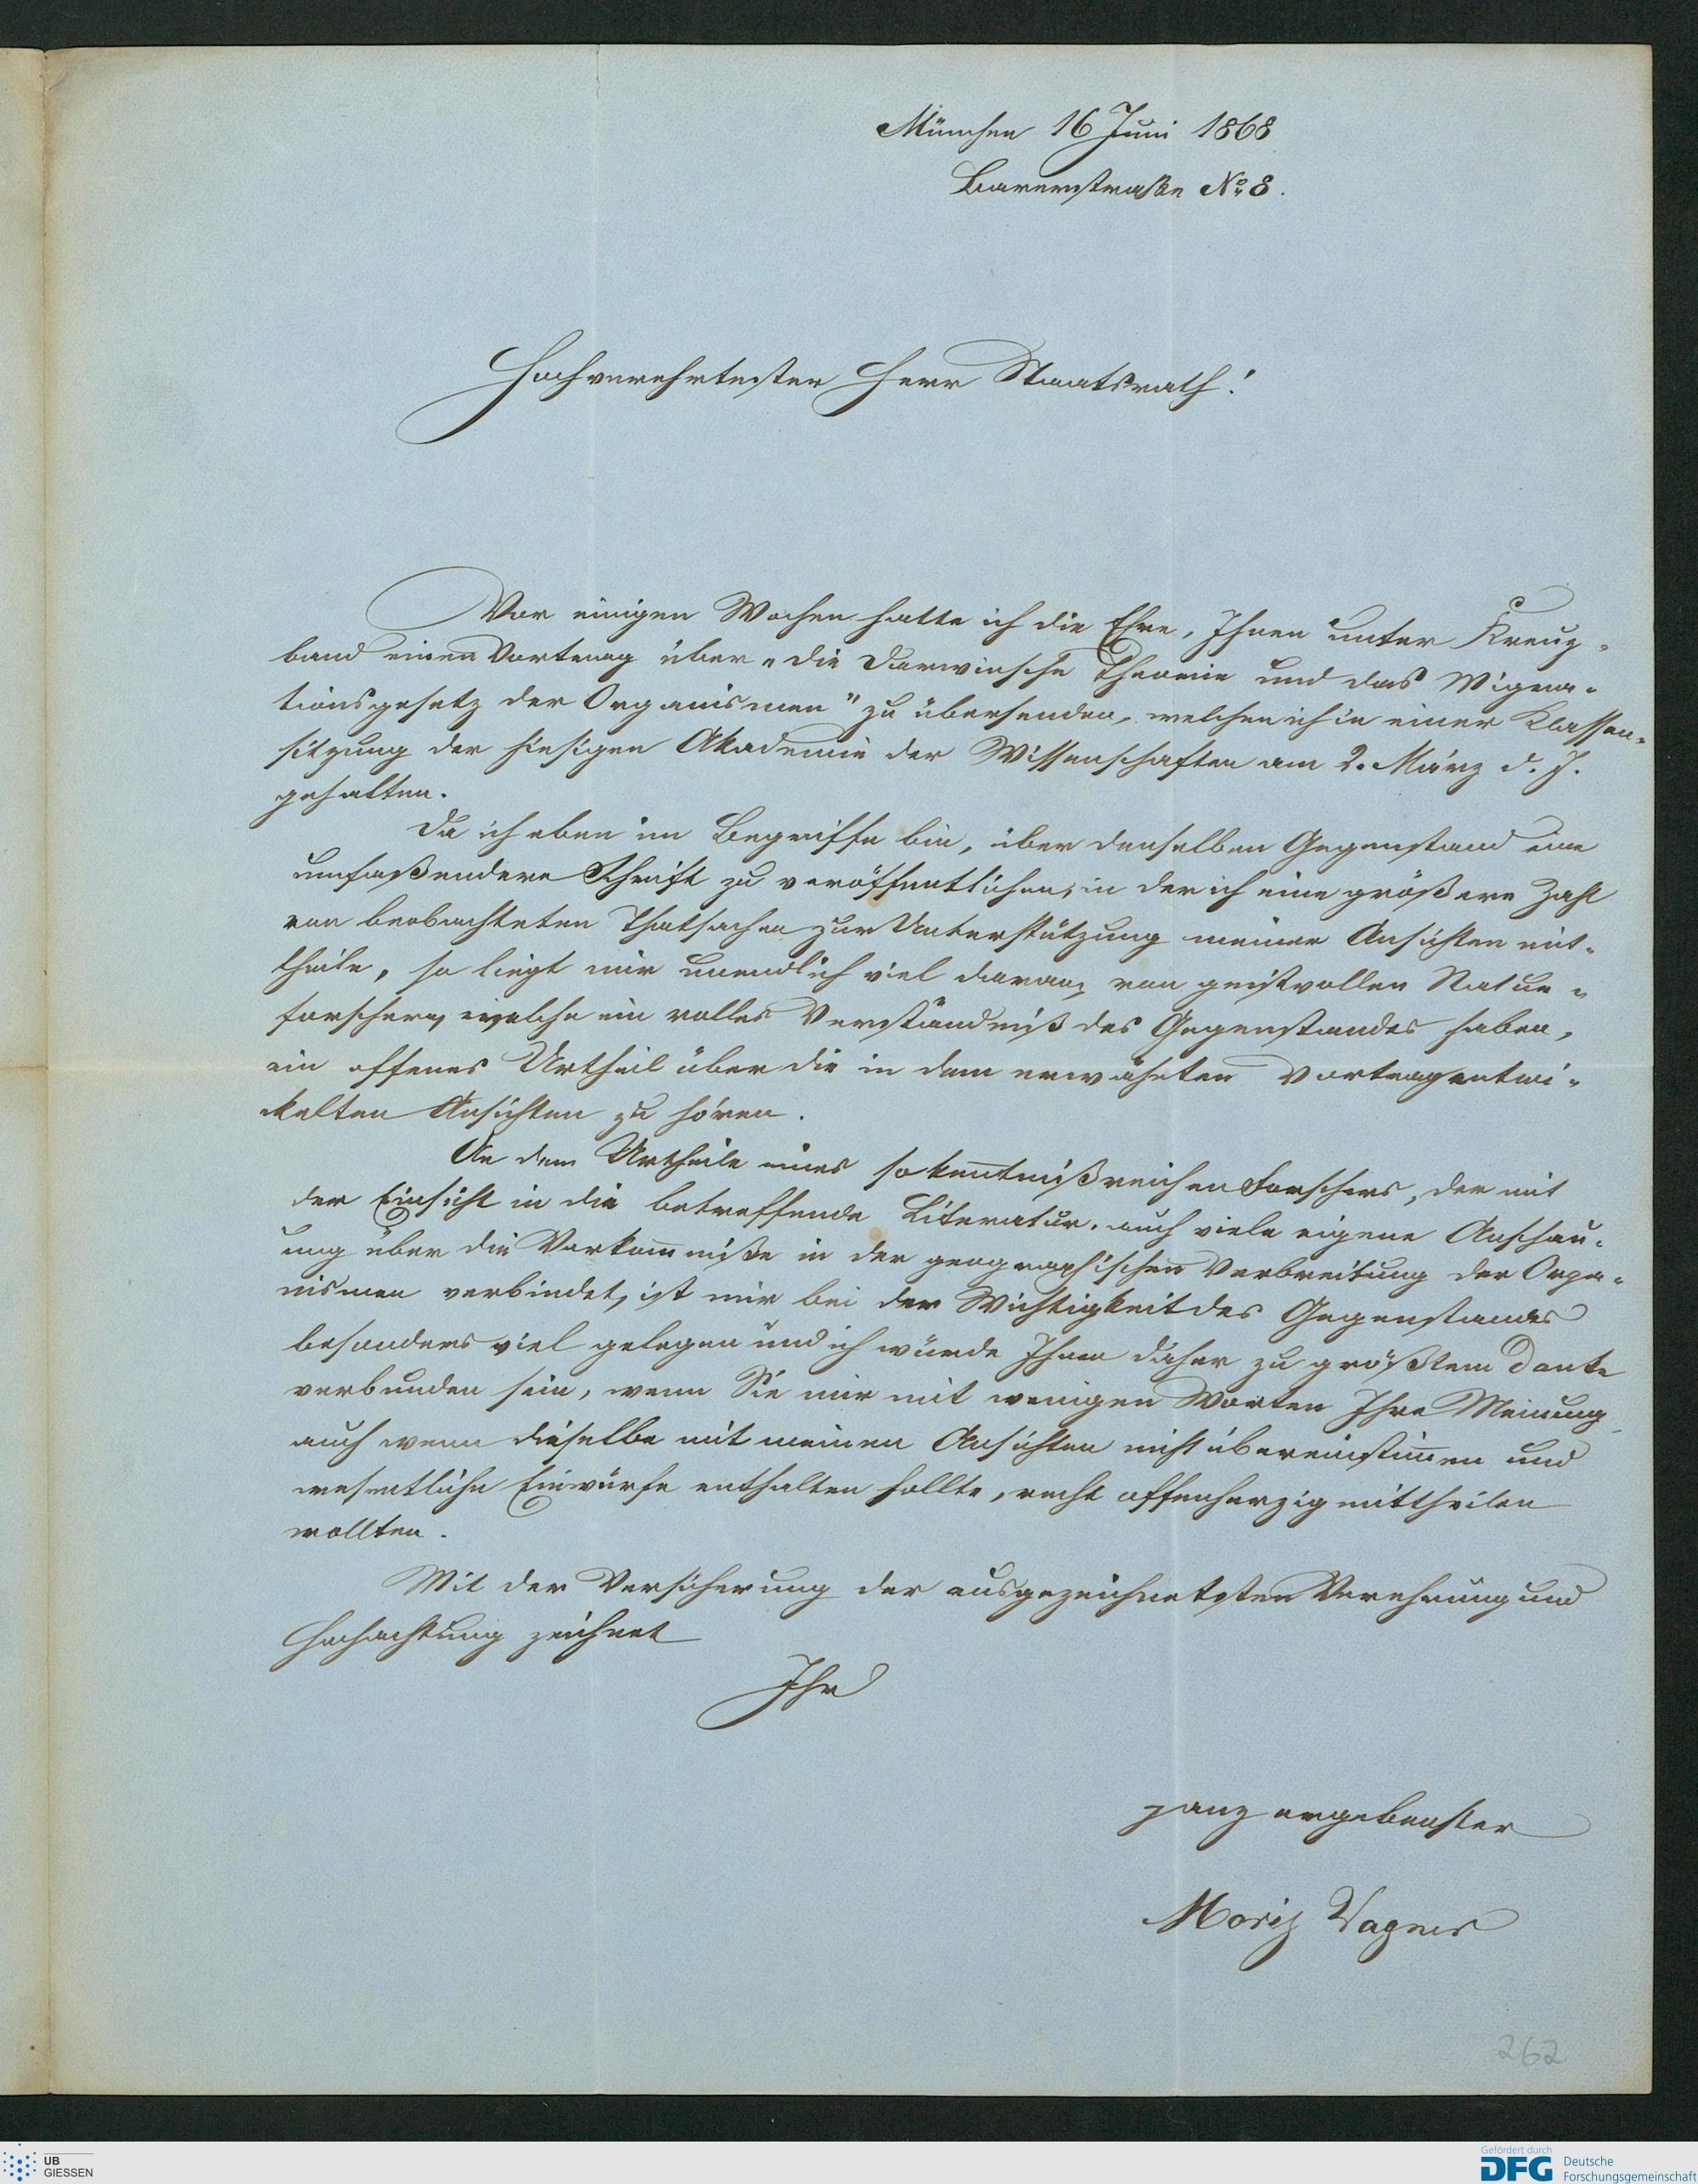 München 16 Juni 1868
Barerstraße No 8.
Hochverehrtester Herr Staatsrath!
Vor einigen Wochen hatte ich die Ehre, Ihnen unter Kreuz-
band einen Vortrag über „die Darwinsche Theorie und das Migra-
tionsgesetz der Organismen" zu übersenden, welchen ich in einer Klassen-
sitzung der hiesigen Akademie der Wissenschaften am 2. März d. J.
gehalten.
Da ich eben im Begriffe bin, über denselben Gegenstand eine
umfaßendere Schrift zu veröffentlichen, in der ich eine größere Zahl
von beobachteten Thatsachen zur Unterstützung meiner Ansichten mit-
theile, so liegt mir unendlich viel daran, von geistvollen Natur-
forschern, welche ein volles Verständniß des Gegenstandes haben,
ein offenes Urtheil über die in dem erwähnten Vortrag entwi-
ckelten Ansichten zu hören.
An dem Urtheile eines so kenntnißreichen Forschers, der mit
der Einsicht in die betreffende Literatur auch viele eigene Anschau-
ung über die Vorkommniße in der geographischen Verbreitung der Orga-
nismen verbindet, ist mir bei der Wichtigkeit des Gegenstandes
besonders viel gelegen und ich würde Ihnen daher zu größtem Danke
verbunden sein, wenn Sie mir mit wenigen Worten Ihre Meinung,
auch wenn dieselbe mit meinen Ansichten nicht übereinstimmen und
wesentliche Einwürfe enthalten sollte, recht offenherzig mittheilen
wollten.
Mit der Versicherung der ausgezeichnetsten Verehrung und
Hochachtung zeichnet
Ihr
ganz ergebenster
Moriz Wagner
262
UB
GIESSEN
Gefördert durch
DFG Deutsche
Forschungsgemeinschaft